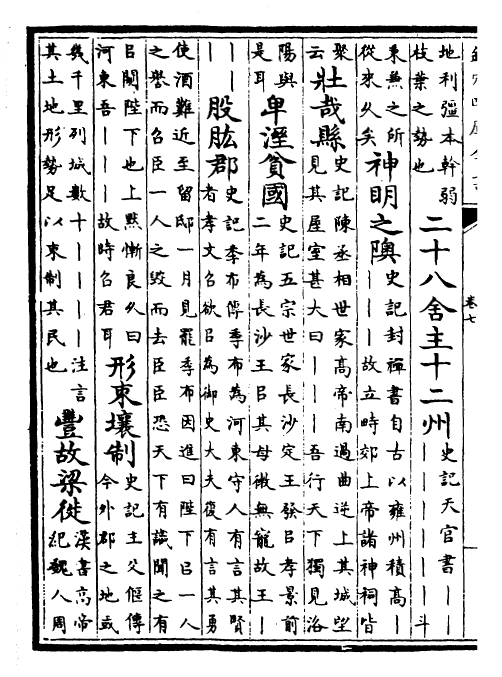 欽定四庫全書
卷七
地利彊本幹弱
枝葉之勢也
二十八舍主十二州
史記天官書丨丨
丨丨丨丨丨丨斗
秉兼之所
從來久矣
神明之隩
史記封禪書自古以雍州積高丨
丨丨丨故立畤郊上帝諸神祠皆
聚
云
壯哉縣
史記陳丞相世家高帝南過曲逆上其城望
見其屋室甚大曰丨丨丨吾行天下獨見洛
陽與
是耳
卑溼貧國
史記五宗世家長沙定王發㠯孝景前
二年為長沙王㠯其母微無寵故王丨
丨丨丨
股肱郡
史記季布傳季布為河東守人有言其賢
者孝文召欲㠯為御史大夫復有言其勇
使酒難近至留邸一月見罷季布因進曰陛下㠯一人
之譽而召臣一人之毀而去臣臣恐天下有識聞之有
㠯闚陛下也上黙慚良久曰
河東吾丨丨丨故時召君耳
形束壤制
史記主父偃傳
今外郡之地或
幾千里列城數十丨丨丨丨注言
其土地形勢足以束制其民也
豐故梁徙
漢書高帝
紀魏人周